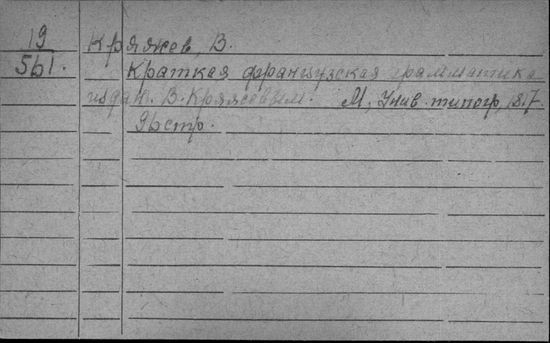 19
561.
Кряжев, В.
Краткая французская грамматика
издан. В. Кряжевым. М, Унив. типогр,
96 стр.